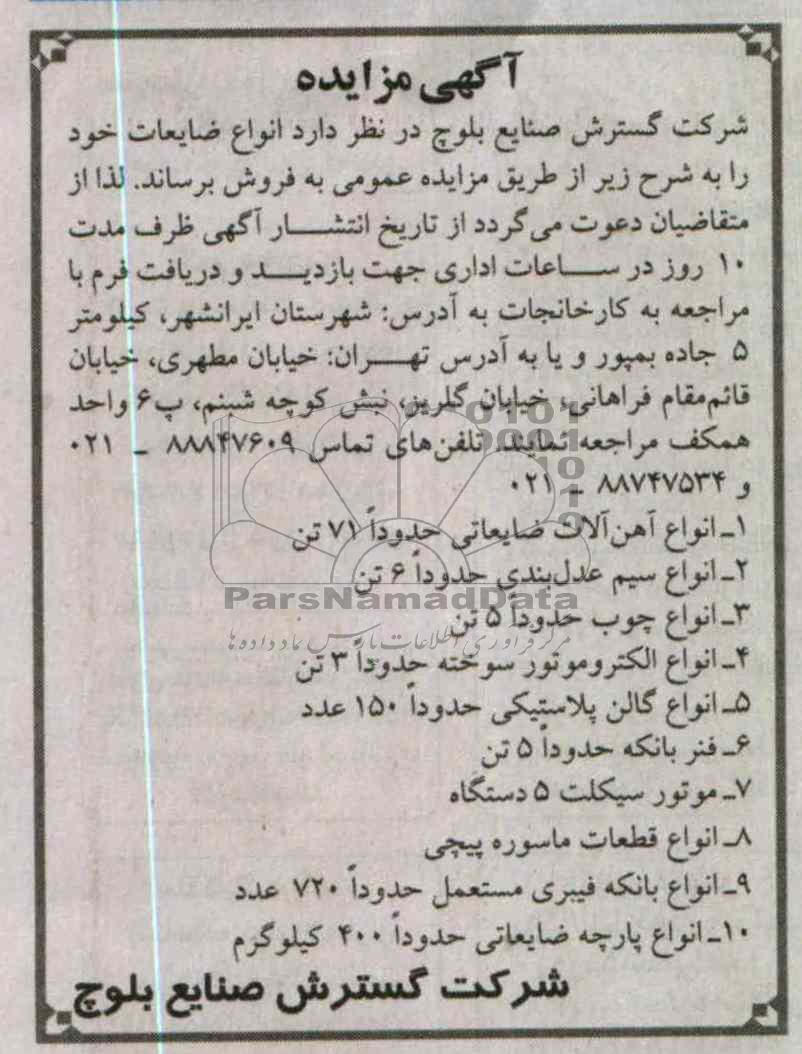 آگهی مزایده
شرکت گسترش صنایع بلوچ در نظر دارد انواع ضایعات خود
را به شرح زیر از طریق مزایده عمومی به فروش برساند. لذا از
متقاضیان دعوت می‌گردد از تاریخ انتشار آگهی ظرف مدت
۱۰ روز در ساعات اداری جهت بازدید و دریافت فرم با
مراجعه به کارخانجات به آدرس: شهرستان ایرانشهر، کیلومتر
۵ جاده بمپور و یا به آدرس تهران: خیابان مطهری، خیابان
قائم‌مقام فراهانی، خیابان گلریز، نبش کوچه شبنم، پ۶ واحد
همکف مراجعه نمایند. تلفن‌های تماس ۸۸۸۴۷۶۰۹ ـ ۰۲۱
و ۸۸۷۴۷۵۳۴ ـ ۰۲۱
۱ـ انواع آهن‌آلات ضایعاتی حدوداً ۷۱ تن
۲ـ انواع سیم عدل‌بندی حدوداً ۶ تن
ParsNamadData
۳ـ انواع چوب حدوداً ۵ تن
مرکز فرآوری اطلاعات پارس نماد داده ها
۴ـ انواع الکتروموتور سوخته حدوداً ۳ تن
۵ـ انواع گالن پلاستیکی حدوداً ۱۵۰ عدد
۶ـ فنر بانکه حدوداً ۵ تن
۷ـ موتور سیکلت ۵ دستگاه
۸ـ انواع قطعات ماسوره پیچی
۹ـ انواع بانکه فیبری مستعمل حدوداً ۷۲۰ عدد
۱۰ـ انواع پارچه ضایعاتی حدوداً ۴۰۰ کیلوگرم
شرکت گسترش صنایع بلوچ